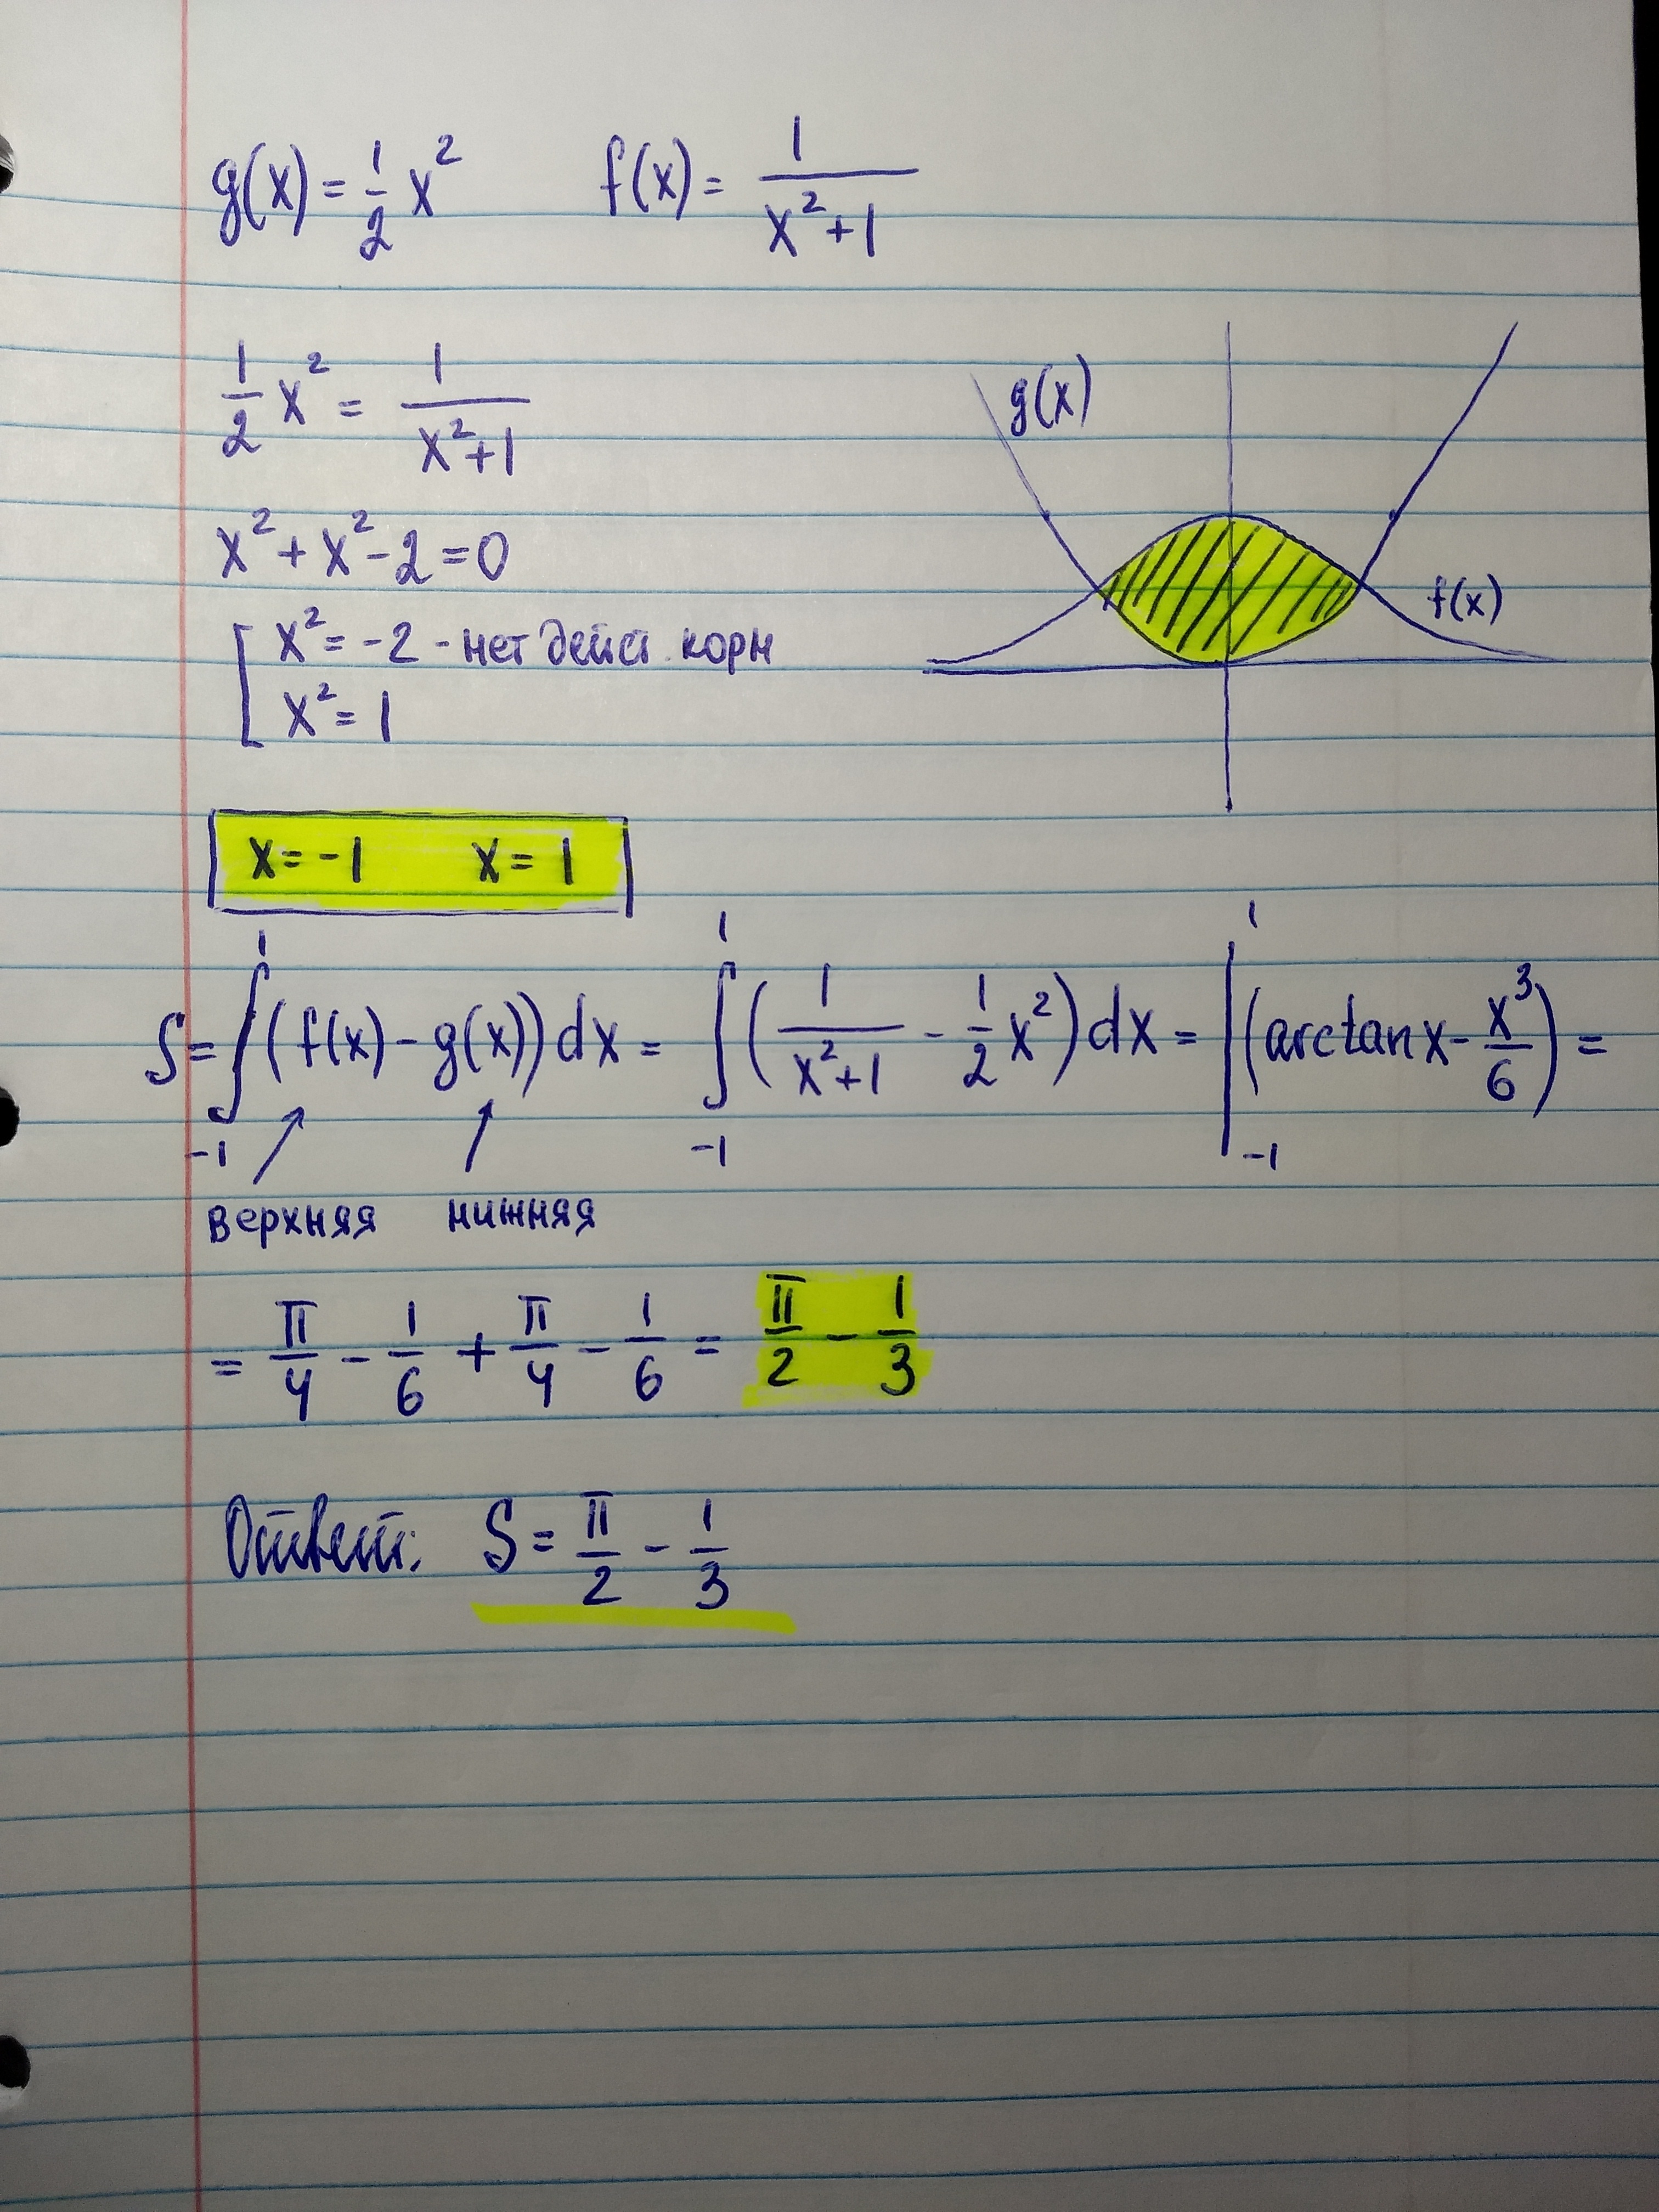 g(x) = 1/2 x² f(x) = 1/(x²+1)
1/2 x² = 1/(x²+1)
g(x)
x² + x² - 2 = 0
f(x)
[ x² = -2 - нет дейст. корн
x² = 1
x = -1 x = 1
S = ∫₋₁¹ (f(x) - g(x)) dx = ∫₋₁¹ (1/(x²+1) - 1/2 x²) dx = |₋₁¹ (arctan x - x³/6) =
верхняя нижняя
= π/4 - 1/6 + π/4 - 1/6 = π/2 - 1/3
Ответ: S = π/2 - 1/3